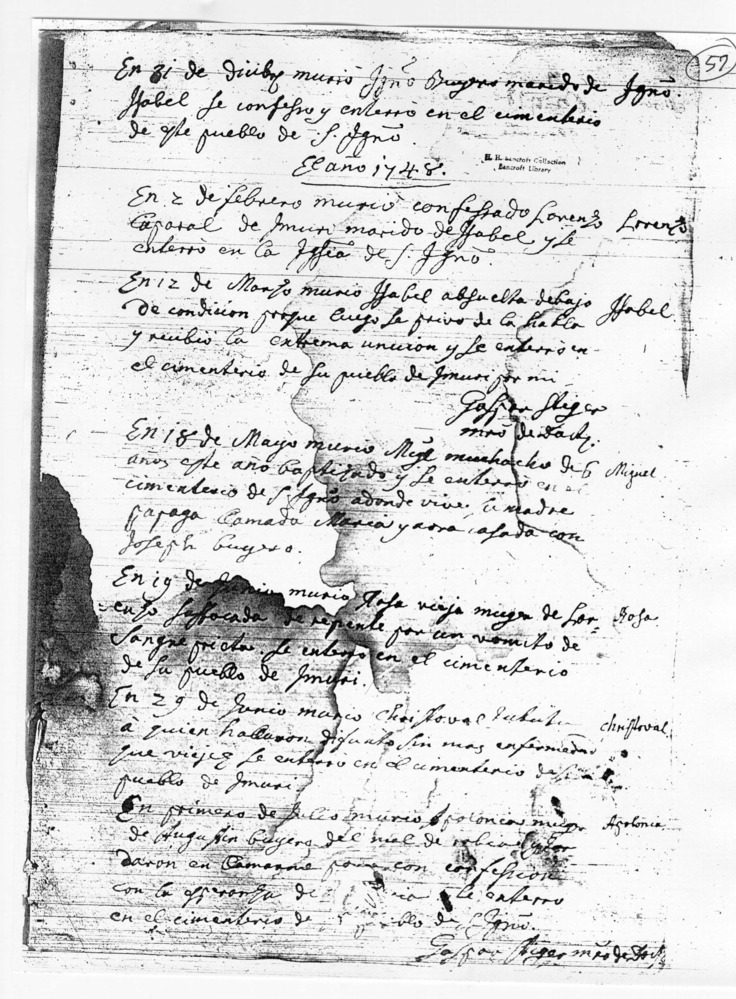 57
En 31 de dicibre murió Ygnº Buyero marido de Ygnº.
Ysabel se confesso y enterró en el cimenterio
de este pueblo de S. Ygnº.
El año 1748.
H. H. Bancroft Collection
Bancroft Library
En 2 de febrero murió confessado Lorenzo Lorenzo
Caporal de Ymuri marido de Ysabel y se
enterró en la Yglia de S. Ygnº
En 12 de Marzo murio Ysabel absuelta debajo Ysabel
de condicion porque luego se privo de la habla
y recibió la extrema uncion y se enterró en
el cimenterio de su pueblo de Ymuri por mi
Gaspar Stiger
mrõ de Doctr.
En 18 de Mayo murio Migl muchacho de 6 Miguel
años este año baptizado y se enterro en el
cimenterio de S. Ygnº adonde vive su madre
papaga llamada Maria y aora casada con
Joseph buyero.
En 19 de Junio murio Rosa vieja muger de Lor- Rosa
enzo suffocada de repente por un vomito de
sangre prieta. se enterro en el cimenterio
de su pueblo de Ymuri.
En 29 de Junio murio Christoval Christoval
à quien hallaron difunto sin mas enfermedad
que viejez se enterro en el cimenterio de su
pueblo de Ymuri
En primero de Julio murio Apolonia muger Apolonia
de Augustin buyero del mal de
daron en llamarme para con confession
con la esperanza de se enterro
en el cimenterio de pueblo de S. Ygnº.
Gaspar Stiger mrõ de Doctr.